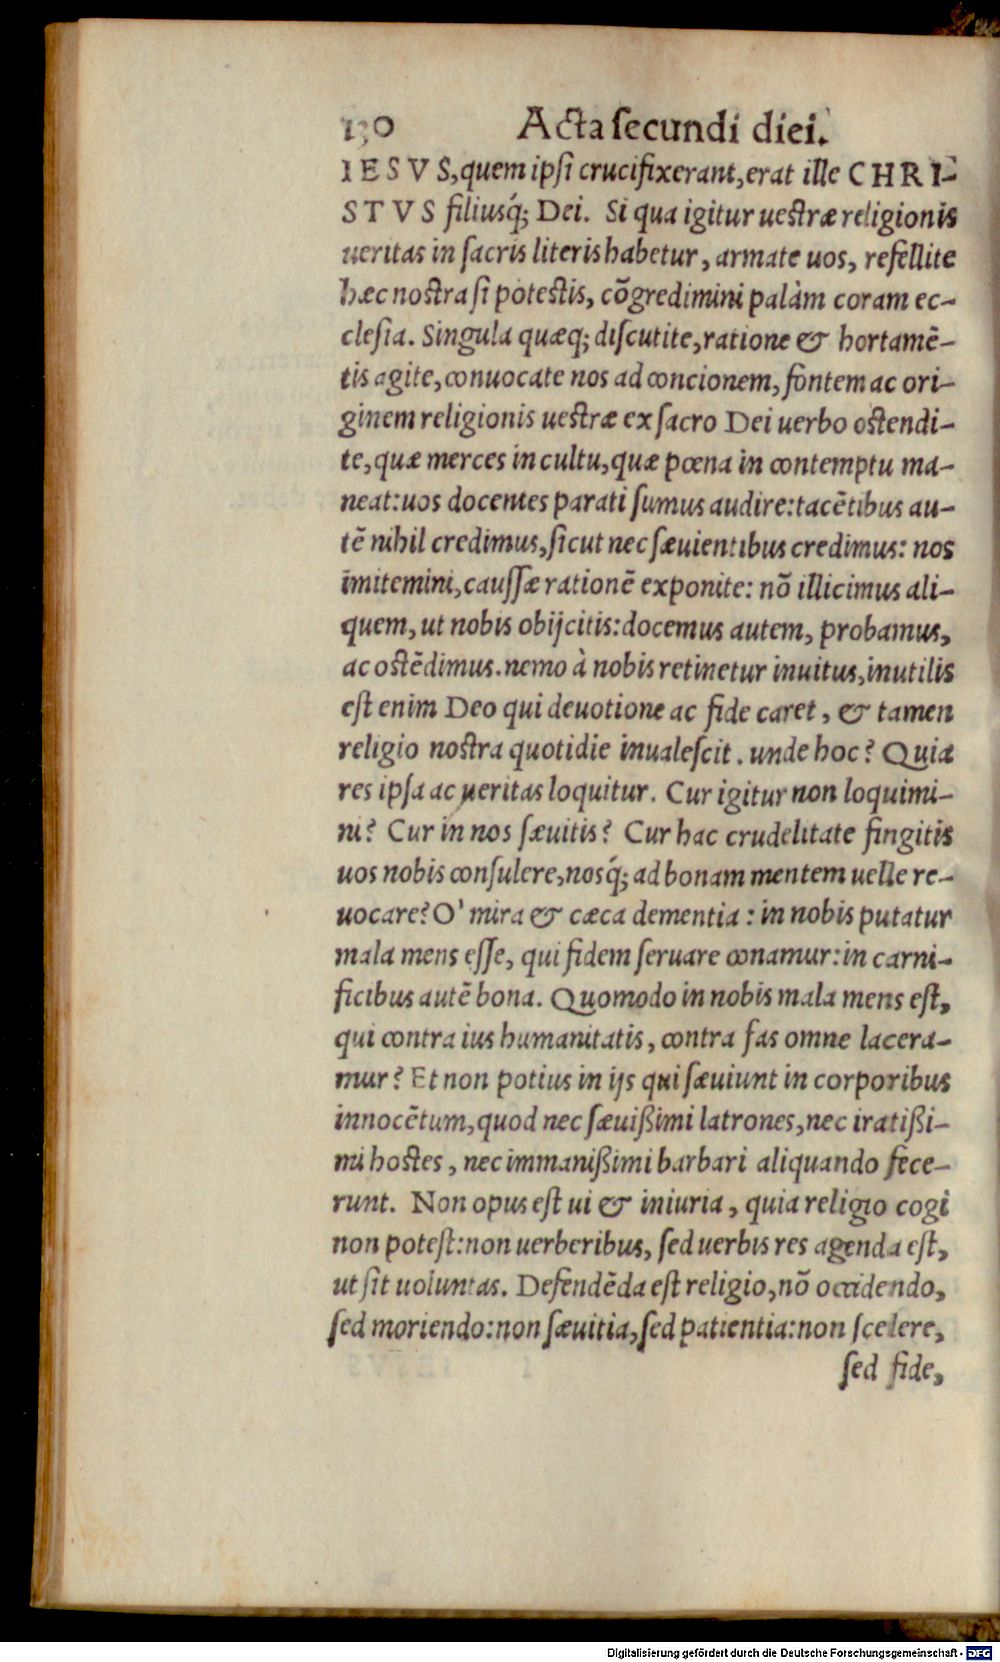 130 Acta secundi diei.
IESVS, quem ipsi crucifixerant, erat ille CHRI-
STVS filiusq́; Dei. Si qua igitur uestræ religionis
ueritas in sacris literis habetur, armate uos, refellite
hæc nostra si potestis, cõgredimini palàm coram ec-
clesia. Singula quæq; discutite, ratione & hortamẽ-
tis agite, conuocate nos ad concionem, fontem ac ori-
ginem religionis uestræ ex sacro Dei uerbo ostendi-
te, quæ merces in cultu, quæ pœna in contemptu ma-
neat: uos docentes parati sumus audire: tacẽtibus au-
tẽ nihil credimus, sicut nec sæuientibus credimus: nos
imitemini, caussæ rationẽ exponite: nõ illicimus ali-
quem, ut nobis obijcitis: docemus autem, probamus,
ac ostẽdimus. nemo à nobis retinetur inuitus, inutilis
est enim Deo qui deuotione ac fide caret, & tamen
religio nostra quotidie inualescit. unde hoc? Quia
res ipsa ac ueritas loquitur. Cur igitur non loquimi-
ni? Cur in nos sæuitis? Cur hac crudelitate fingitis
uos nobis consulere, nosq́; ad bonam mentem uelle re-
uocare? O' mira & cæca dementia: in nobis putatur
mala mens esse, qui fidem seruare conamur: in carni-
ficibus autẽ bona. Quomodo in nobis mala mens est,
qui contra ius humanitatis, contra fas omne lacera-
mur? Et non potius in ijs qui sæuiunt in corporibus
innocẽtum, quod nec sæuißimi latrones, nec iratißi-
mi hostes, nec immanißimi barbari aliquando fece-
runt. Non opus est ui & iniuria, quia religio cogi
non potest: non uerberibus, sed uerbis res agenda est,
ut sit uoluntas. Defendẽda est religio, nõ occidendo,
sed moriendo: non sæuitia, sed patientia: non scelere,
sed fide,
Digitalisierung gefördert durch die Deutsche Forschungsgemeinschaft - DFG